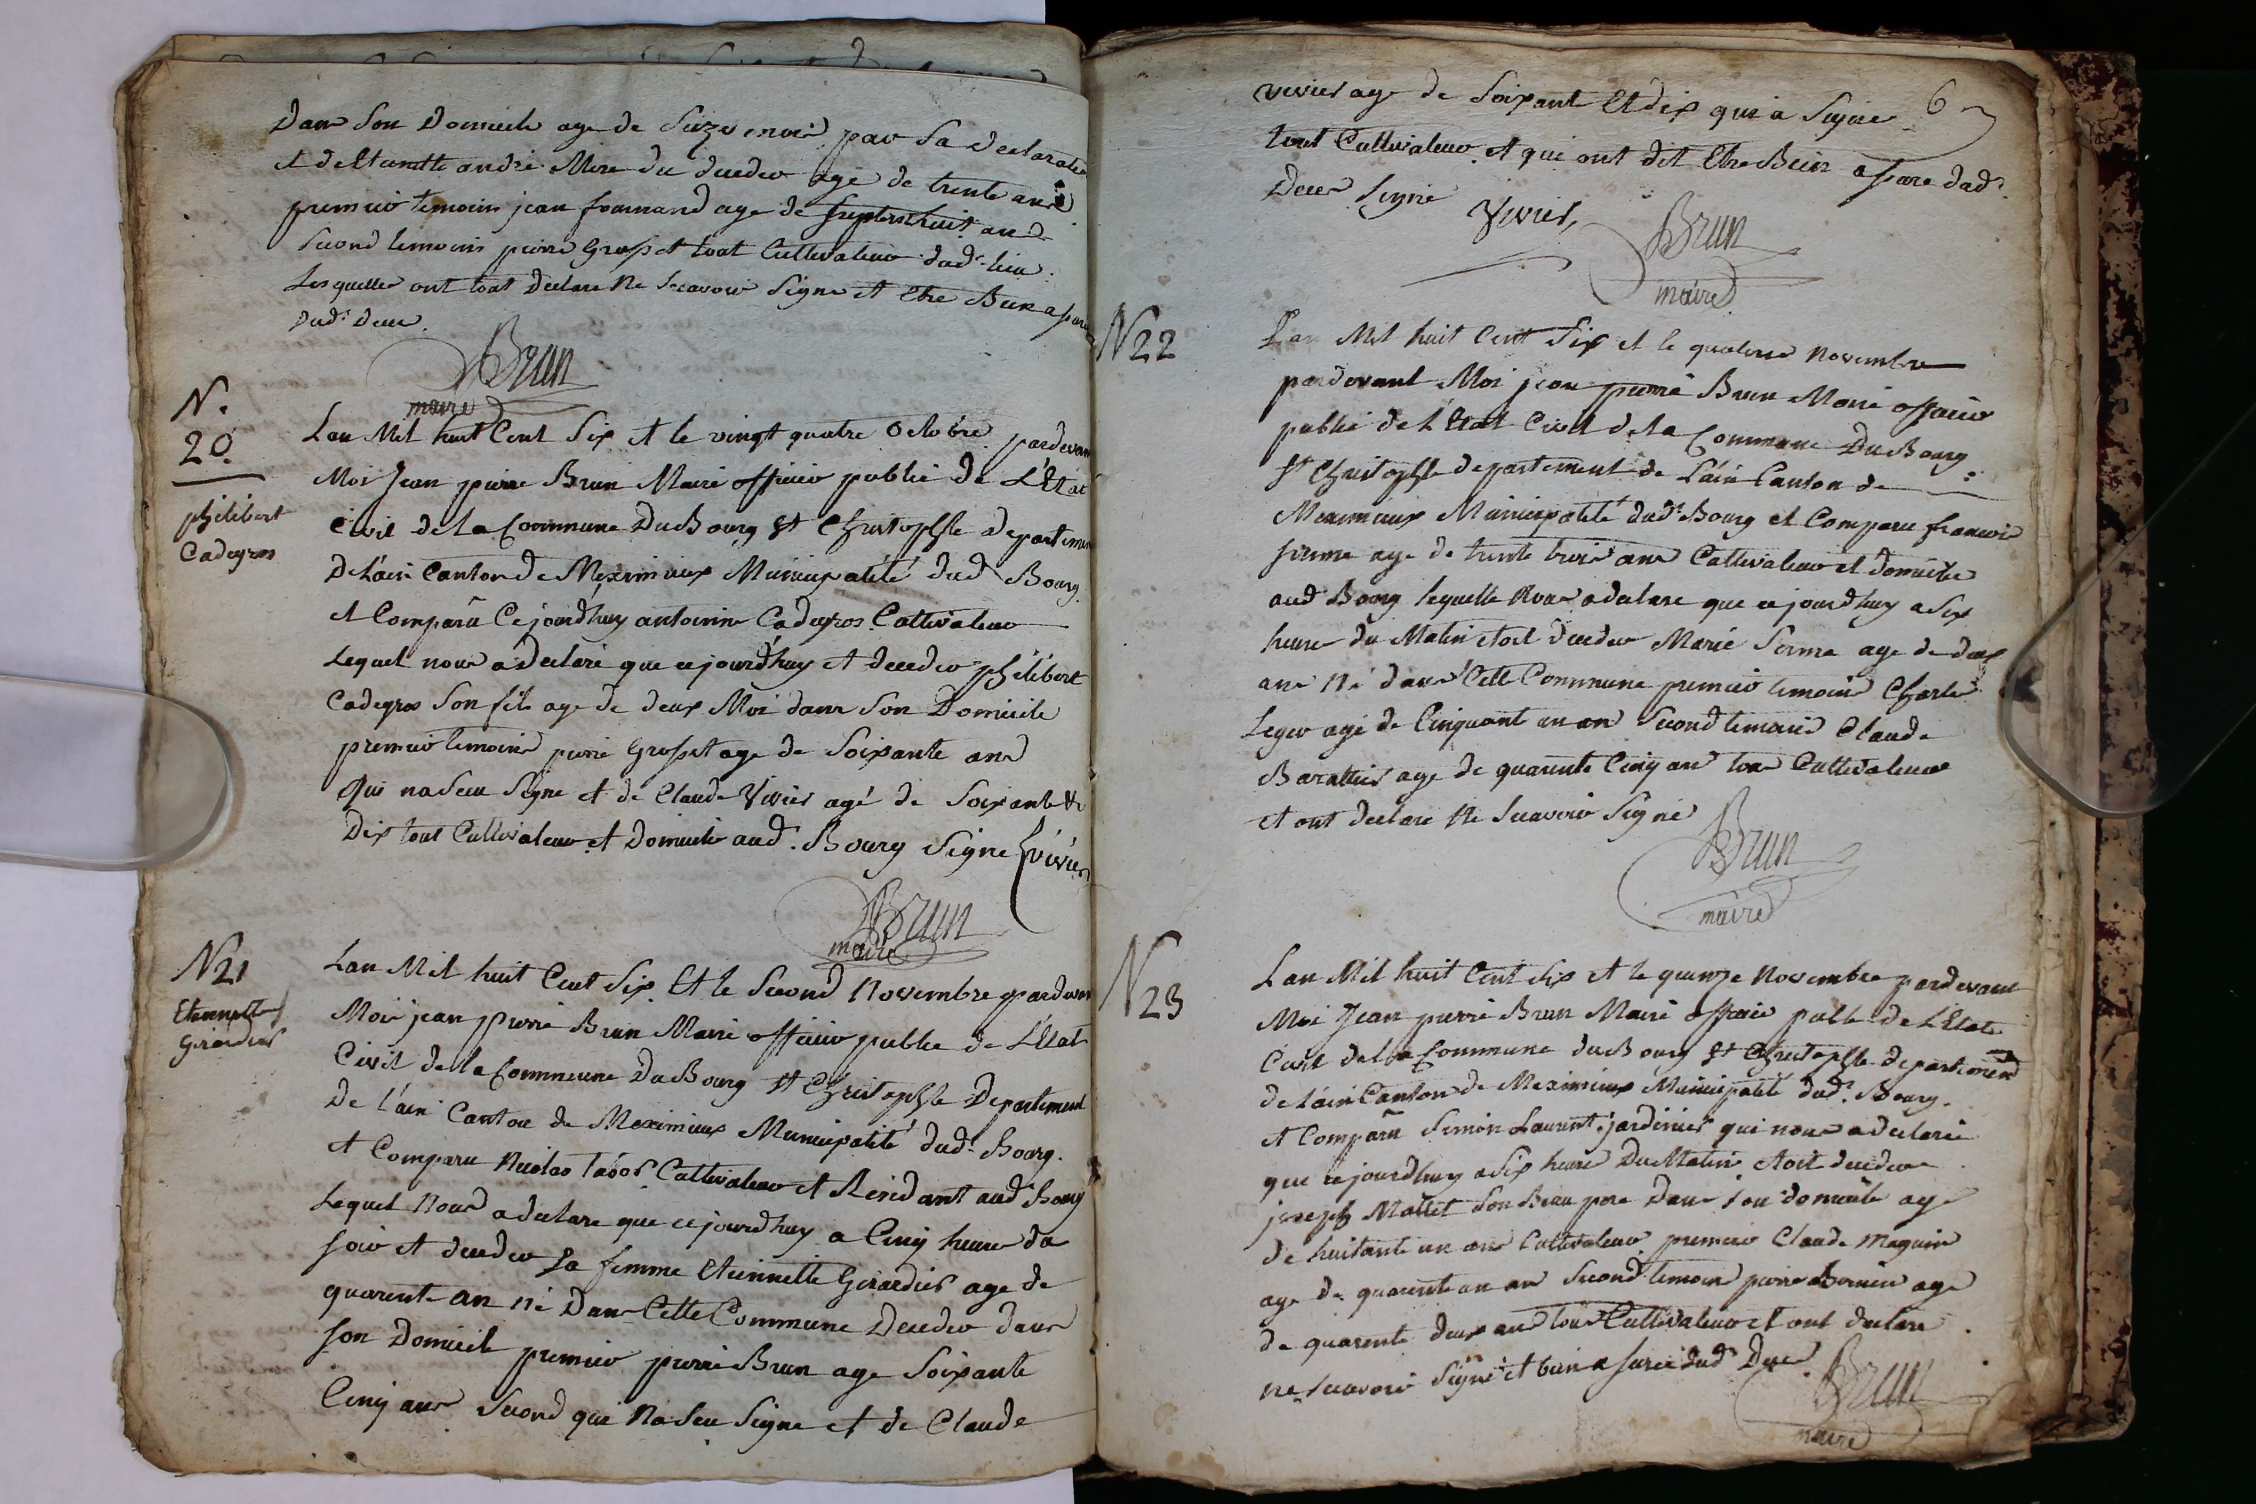 Dans Son Domicile age de Seize mois par Sa declaration
et deEtiennette andré Mere du decedee agé de trente ans
premier temoin jean age de ans
Second temoin pierre Grosset tout Cultivateur dud. lieu
Lesquelle ont tout Declare Ne Scavoir Signe et Etre Bien asure
dud. deces
Brun
maire
N.
20.
philibert
Cadegros
Lan Mil huit Cent Six et le vingt quatre Octobre pardevant
Moi Jean pierre Brun Maire officier public de L'Etat
Civil de la Commune DuBourg St Christophle Departement
De L'ain Canton de Meximieux Municipalité dud. Bourg
et Comparu Cejourdhuy antoinne Cadegros Cultivateur
Lequel nous a declaré que cejourdhuy et decedee philibert
Cadegros Son fils age de deux Moi dans Son Domicile
premier temoins pierre Grosset age de Soixante ans
Qui na Seu Signe et de Claude Vivier agé de Soixante et
Dix tout Cultivateur et Domicilie aud. Bourg Signe Vivier
Brun
maire
N21
Etiennette
Girardier
Lan Mil huit Cent Six Et le Second Novembre pardevant
Moi jean pierre Brun Maire officier public de L'Etat
Civil de la Commune DuBourg St Christophle Departement
De l'ain Canton de Meximieux Municipalité dud. Bourg.
et Comparu Nicolas Cultivateur et Residant aud. Bourg
Lequel Nous a declare que cejourdhuy a Cinq heure du
soir et decedee Sa femme Etiennette Girardier age de
quarente an né Dans Cette Commune Decedee dans
son Domicile premier pierre Brun age Soixante
Cinq ans Second qui Na Seu Signe et de Claude
6
vivier age de Soixante Et dix qui a Signe
tout Cultivateur et qui ont dit Etre Bien asure dud.
Deces Signe Vivier,
Brun
maire
N22
Lan Mil huit Cent Six et le quatorse Novembre
pardevant Moi jean pierre Brun Maire officier
public de L'Etat Civil de la Commune Du Bourg
St Christophle departement de L'ain Canton de
Meximieux Municipalité dud. Bourg et Comparu francois
age de trente trois ans Cultivateur et domicilie
aud. Bourg lequelle Nous a declare que cejourdhuy a Six
heure du Matin etoit decedee Marie age de deux
ans Né dans Cette Commune premier temoins Charle
Leger agé de Cinquant un an Second temoins Claude
age de quarente Cinq ans tous Cultivateur
et ont declare Ne Scavoir Signé
Brun
maire
N
23
Lan Mil huit Cent Six et le quinze Novembre pardevant
Moi Jean pierre Brun Maire officier public de L'Etat
Civil de la Commune duBourg St Christophle departement
de L'ain Canton de Meximieux Municipalité dud. Bourg.
et Comparu Simon Laurent jardinier qui nous a declaré
que cejourdhuy a Six heure Du Matin etoit decedee
joseph Mallet Son Beau pere Dans Son domicile age
de huitante un ans Cultivateur premier Claude Maguin
age de quarente un an Second temoins pierre age
de quarente deux ans tous Cultivateur et ont declare
ne Scavoir Signé et bien asuree dud. Deces
Brun
maire